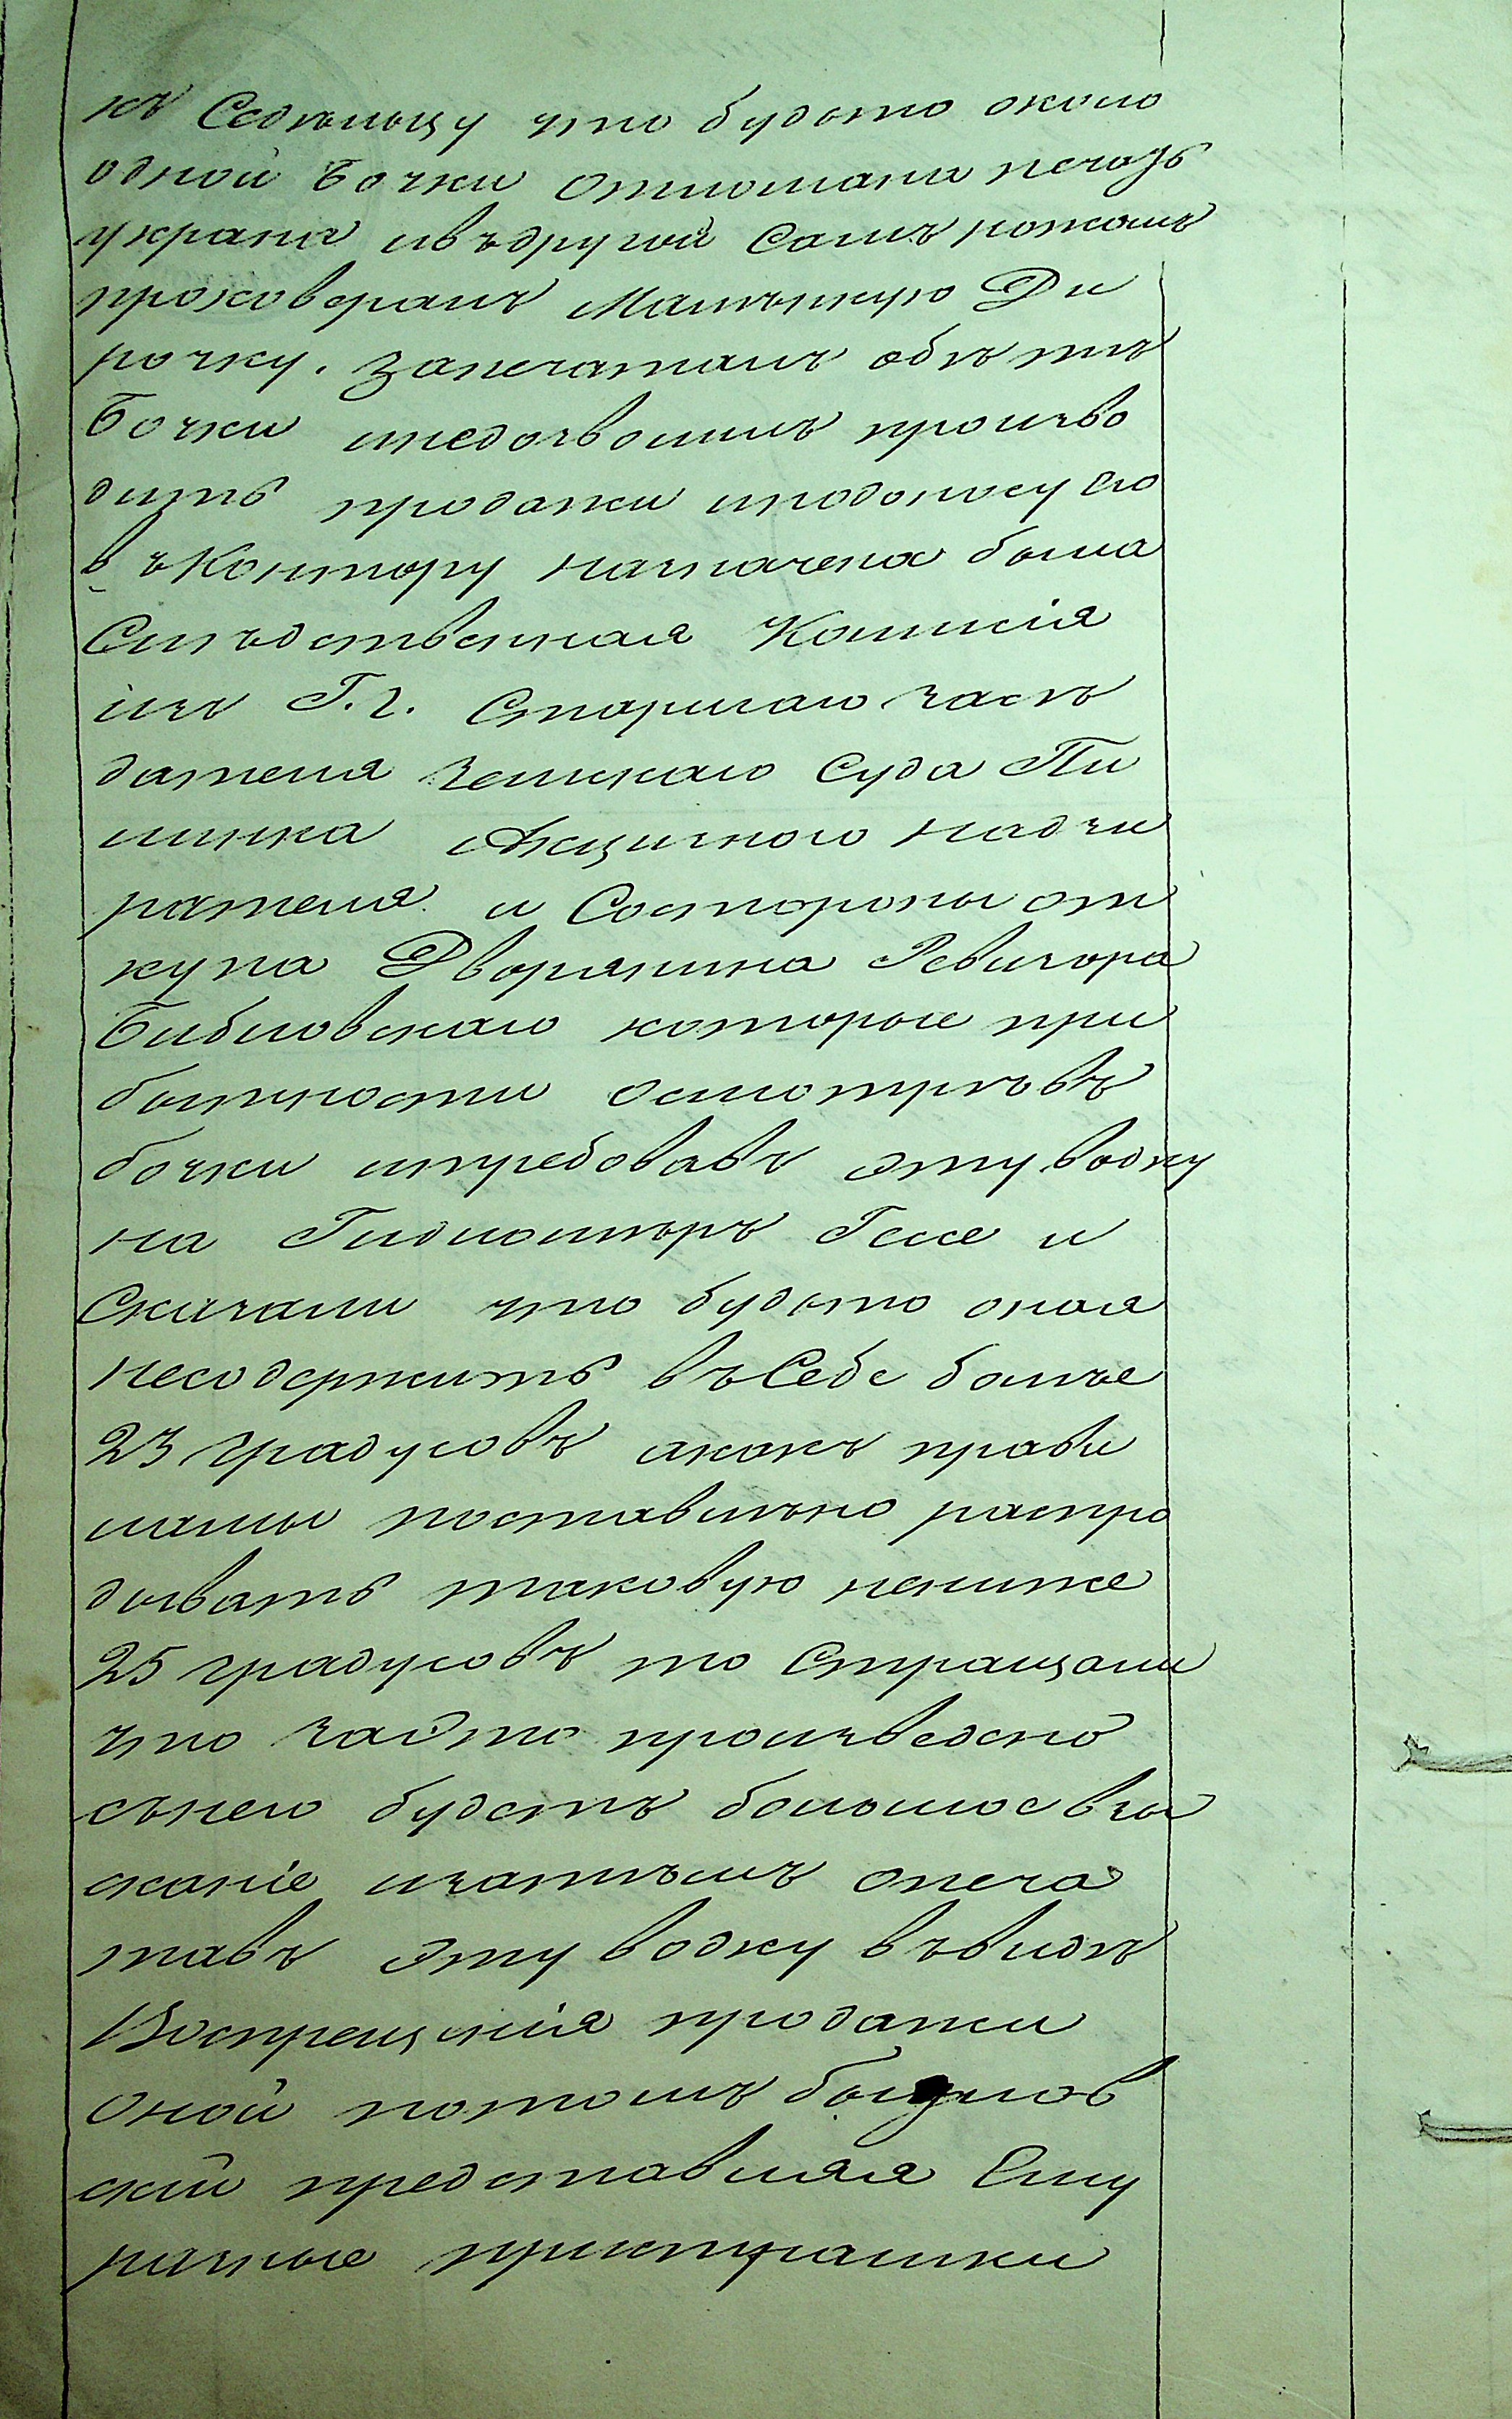 къ Седлецу что будьто около
одной бочки отломани печать
украна ивъдругой самъ ножомъ
проковералъ Малѣнкую Ди
рочку. запечаталъ обѣ тѣ
Бочки инедозволилъ произво
дить продажи ипоодоносу его
в ъКонтору назначена была
Слѣдственная Комисія
изъ Г. г. Старшаго засѣ
дателя Земскаго Суда Пи
линка Акцизного надзи
рателя и Состороны от
купа Дворянина Ревизора
Бибиовскаго которые при
бытности осмотрѣвъ
бочки ипребовавъ эту водку
на Гидлометръ Гесе и
Сказали что будьто оная
несодержить въСебе более
23 градусовъ акакъ прави
ламы поставлѣно распро
довать таковую нениже
25 градусовъ то Стращали
что заэто произведено
снего будетъ большое взы
сканіе изатѣмъ опеча
тавъ эту водку въвидѣ
Воспрещенія продажи
оной потомъ
скій представляя Ему
разные пристрашки